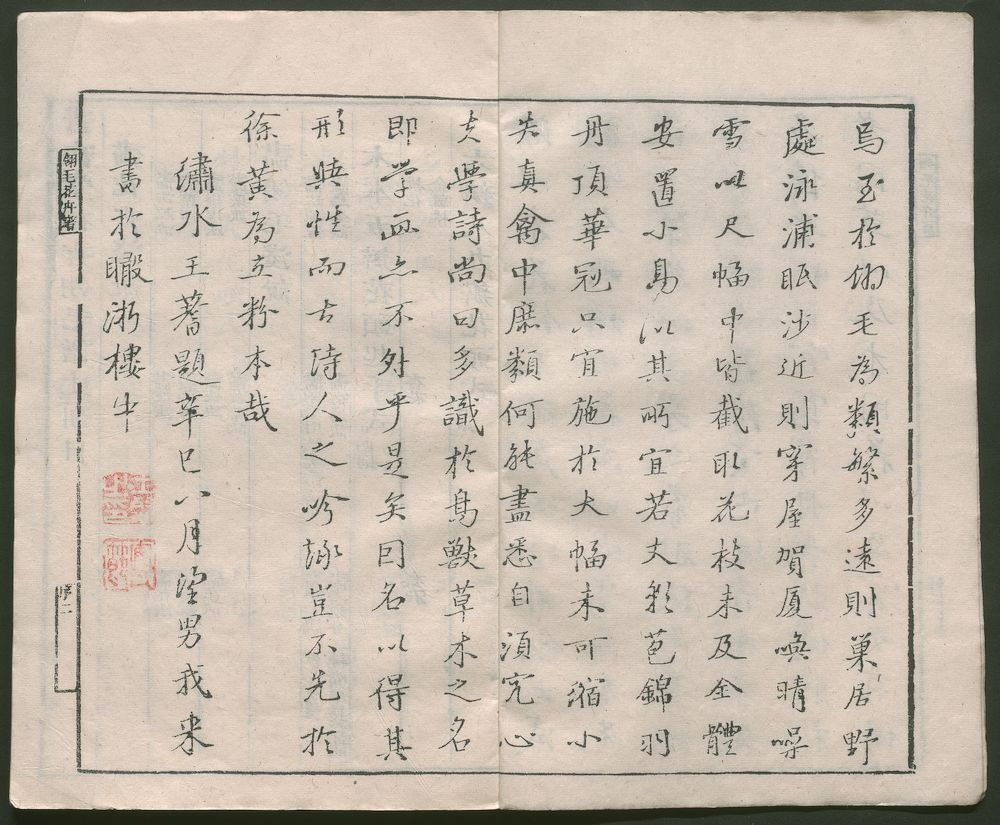 焉至於翎毛為類繁多遠則巢居野
處泳浦眠沙近則穿屋賀厦喚晴噪
雪此尺幅中皆截取花枝未及全體
安置小鳥以其所宜若文彩苞錦羽
丹頂華冠只宜施於大幅未可縮小
失真禽中庶類何能盡悉自須究心
夫學詩尚曰多識於鳥獸草木之名
即學画亦不外乎是矣因名以得其
形與性而古詩人之吟詠豈不先於
徐黃為立粉本哉
繡水王蓍題辛巳八月望男我來
書於瞰浙樓中
翎毛花卉譜
序二